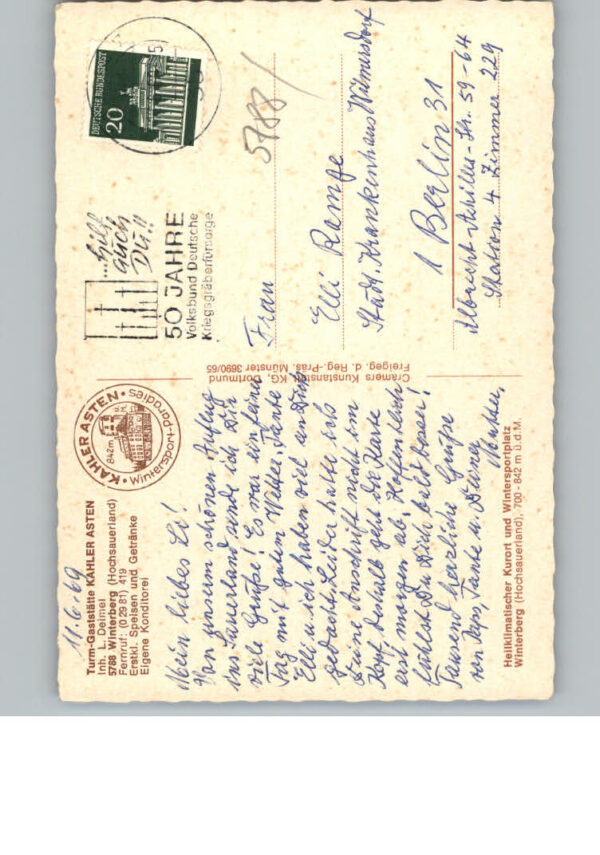 11.6.69
Turm-Gaststätte KAHLER ASTEN
Inh. L. Deimel
5788 Winterberg (Hochsauerland)
Fernruf: (0 29 81) 419
Erstkl. Speisen und Getränke
Eigene Konditorei
KAHLER ASTEN
842 m ü. M.
Wintersport-Paradies
Mein liebes Li!
Von einem schönen Ausflug
ins Sauerland sende ich Dir
viele Grüße! Es war ein feiner
Tag mit gutem Wetter, Tante
Elli u. ich haben viel an Dich
gedacht. Leider hatte ich
Deine Anschrift nicht im
Kopf, deshalb geht die Karte
erst morgen ab. Hoffentlich
fühlst Du Dich bald besser!
Tausend herzliche Grüße
von Tante u. Deiner
Heilklimatischer Kurort und Wintersportplatz
Winterberg (Hochsauerland), 700 - 842 m ü.d.M.
Cramers Kunstanstalt KG, Dortmund
Freigeg. d. Reg.-Präs. Münster 3690/65
...hilf
auch
DU!!
50 JAHRE
Volksbund Deutsche
Kriegsgräberfürsorge
DEUTSCHE BUNDESPOST
20
5788
Frau
Elli Rampe
Städt. Krankenhaus Wilmersdorf
1 Berlin 31
Albrecht-Achilles-Str. 59-64
Station 4 Zimmer 229